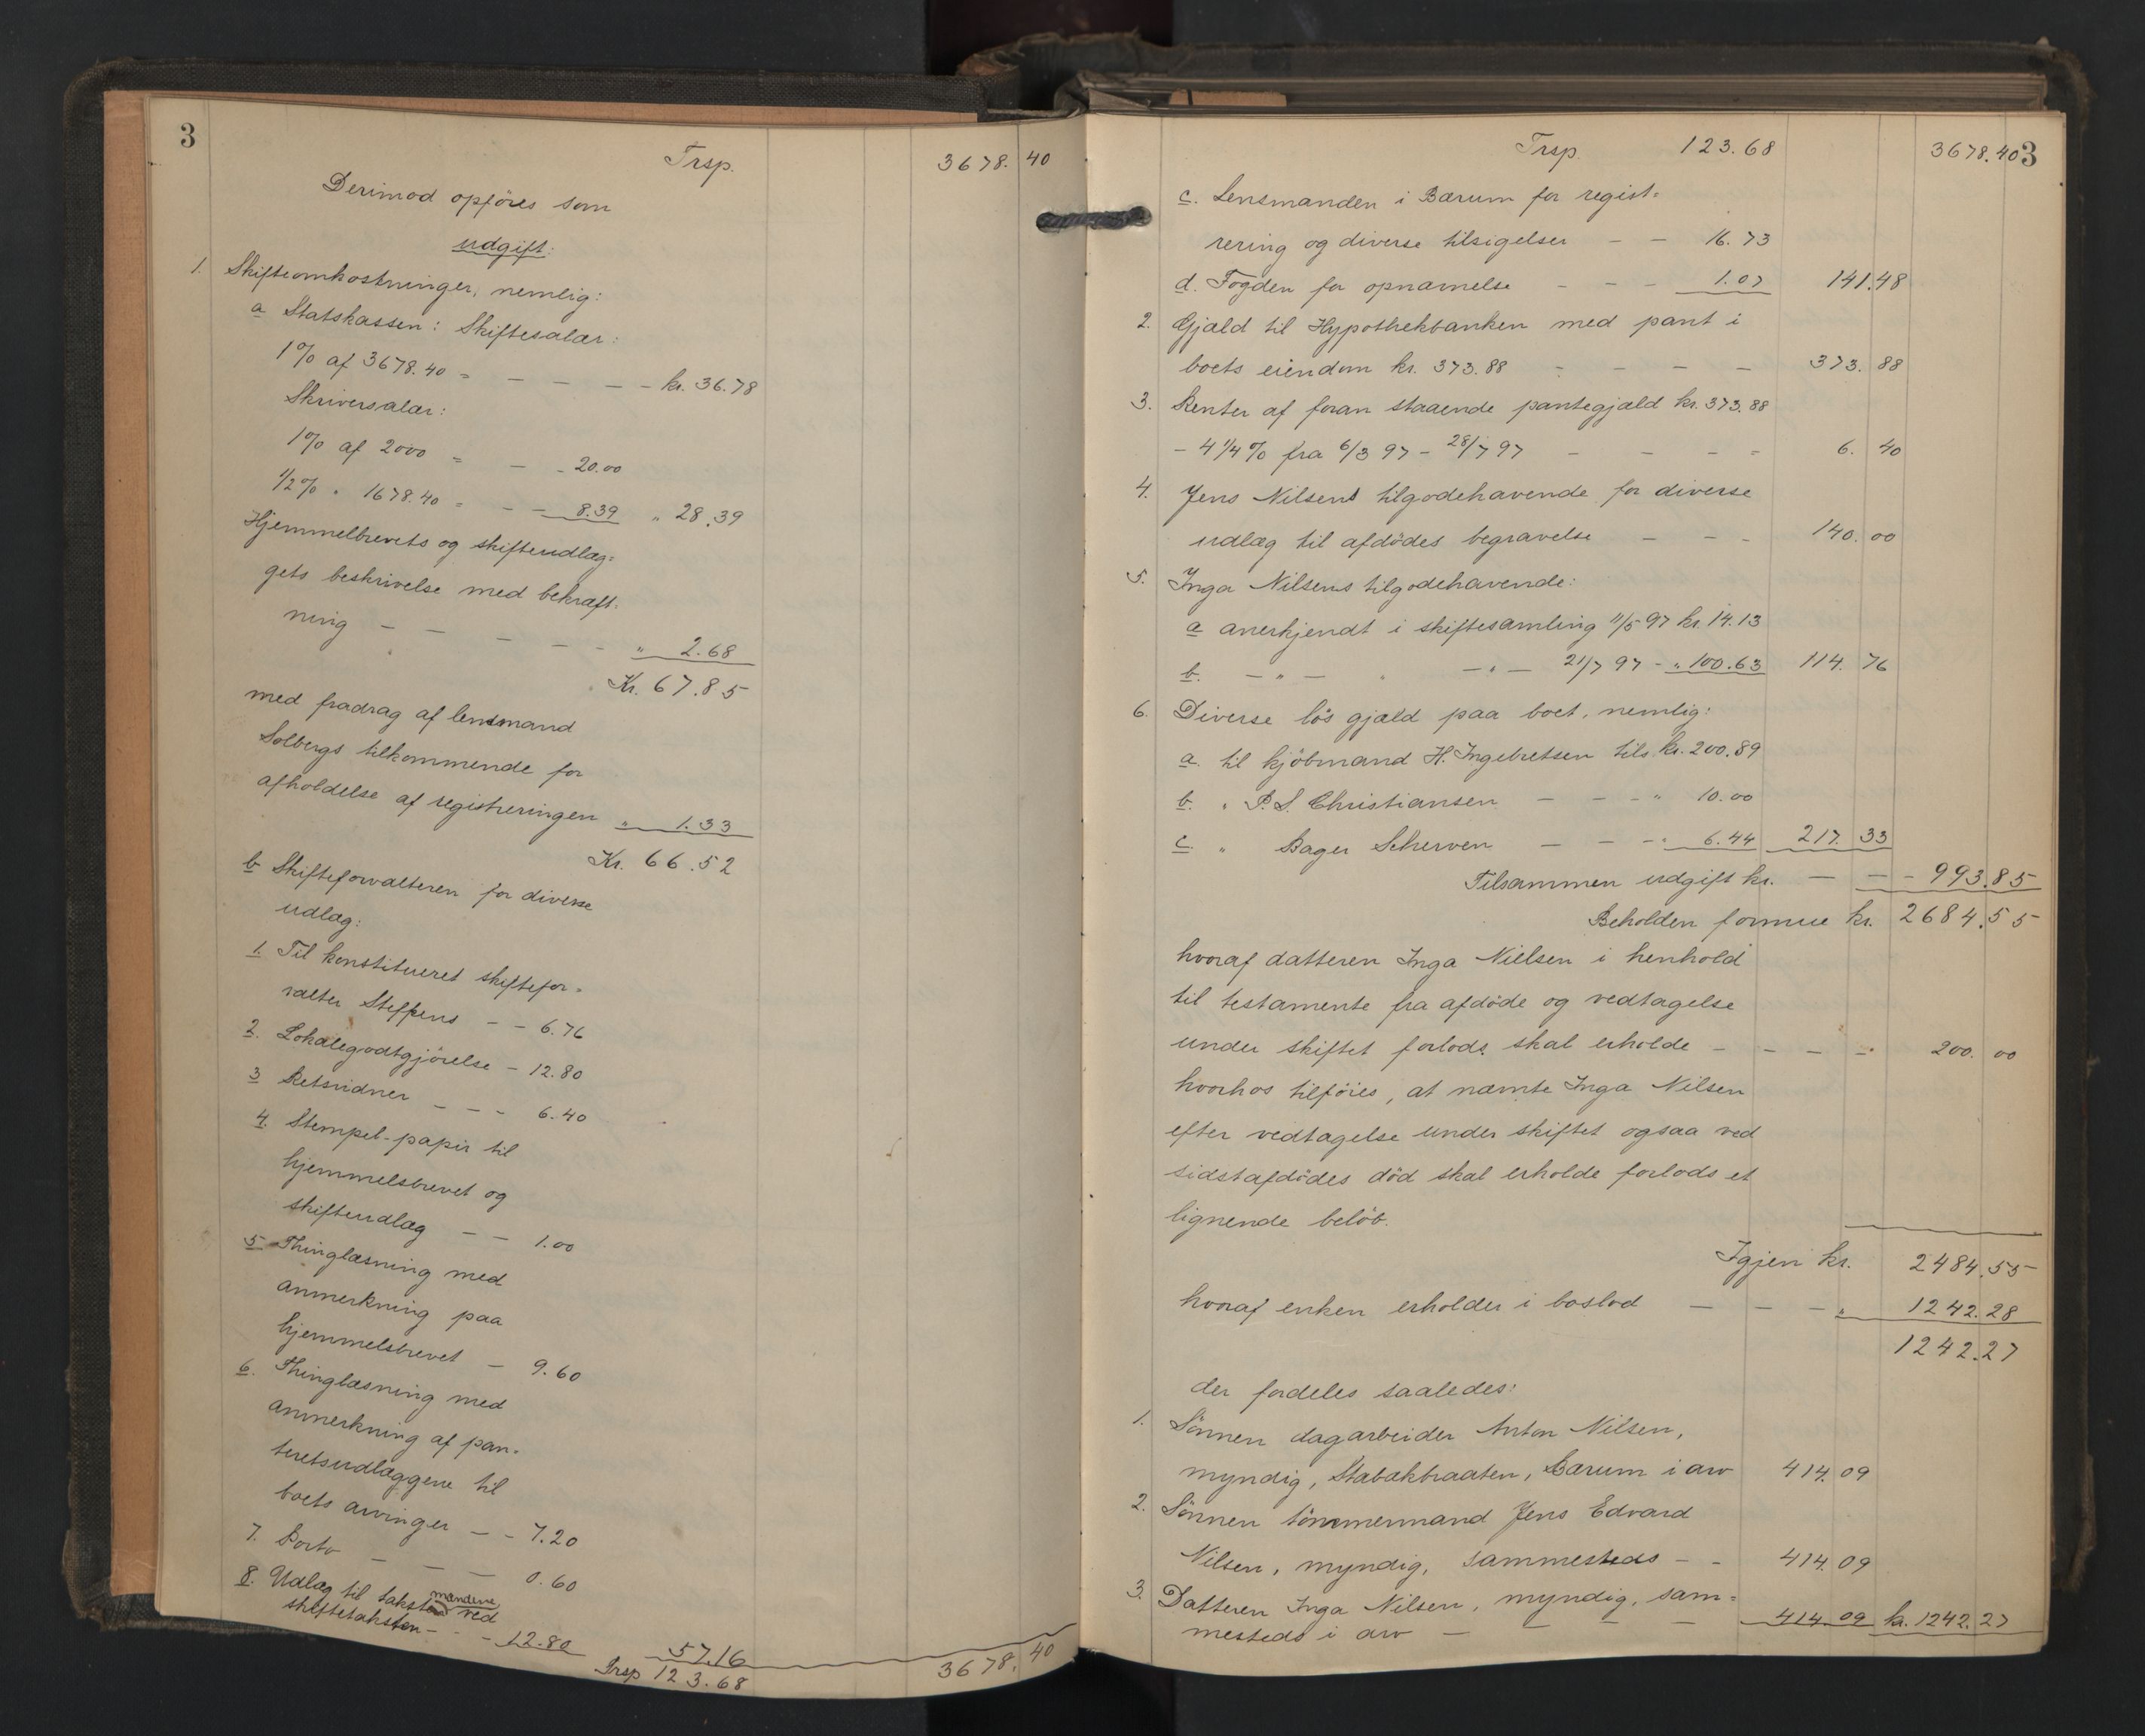 3
Trsp. 3678. 40
Derimod opføres som
udgift:
1. Skifteomkostninger, nemlig:
a Statskassen: Skiftesalær:
1% af 3678.40 = — — — — kr. 36.78
Skriversalær:
1% af 2000 = — - 20.00
1/2% " 1678.40 = — — 8.39 " 28.39
Hjemmelbrevets og skifteudlæg=
gets beskrivelse med bekræft-
ning — — — — - " 2.68
Kr. 67.85
med fradrag af lensmand
Solbergs tilkommende for
afholdelse af registreringen " 1.33
Kr. 66.52
b Skifteforvalteren for diverse
udlæg:
1. Til konstitueret skiftefor=
valter Steffens — — 6.76
2. Lokalegodtgjörelse — 12.80
3 Retsvidner — — - 6.40
4. Stempel-papir til
hjemmelsbrevet og
skifteudlæg — — 1.00
5 Thinglæsning med
anmerkning paa
hjemmelsbrevet — 9.60
6. Thinglæsning med
anmerkning af pan-
teretsudlæggene til
boets arvinger — - 7.20
7. Porto — — — 0.60
8. Udlæg til takst mændene ved
skiftetaksten - - - 12.80 57.16
Trsp 123.68 3678. 40
Trsp. 123.68 3678.40 3
c. Lensmanden i Bærum for regist=
rering og diverse tilsigelser — — 16.73
d. Fogden for opnævnelse — — — 1.07 141.48
2. Gjæld til Hypothekbanken med pant i
boets eiendom kr. 373.88 — — — — 373. 88
3. Renter af foran staaende pantegjæld kr. 373.88
- 4 1/4% fra 6/3 97 - 28/7 97 — — — = 6. 40
4. Jens Nilsens tilgodehavende for diverse
udlæg til afdødes begravelse — — - 140. 00
5. Inga Nilsens tilgodehavende:
a anerkjendt i skiftesamling 11/5 97 kr. 14.13
b. — " — — " — 21/7 97 - " 100.63 114. 76
6. Diverse løs gjæld paa boet, nemlig:
a. til kjöbmand H. Ingebretsen tils. kr. 200.89
b. " P. S. Christiansen — — — " 10.00
c. " Bager Scherven — — — " 6.44 217. 33
Tilsammen udgift kr. — — - 993.85
Beholden formue kr. 2684.55
hvoraf datteren Inga Nielsen i henhold
til testamente fra afdøde og vedtagelse
under skiftet forlods skal erholde — — — — 200. 00
hvorhos tilføies, at nævnte Inga Nilsen
efter vedtagelse under skiftet ogsaa ved
sidstafdødes død skal erholde forlods et
lignende beløb.
Igjen kr. 2484.55
hvoraf enken erholder i boslod — — — " 1242.28
1242.27
der fordeles saaledes:
1. Sønnen dagarbeider Anton Nilsen,
myndig, Stabækbraaten, Bærum i arv 414.09
2. Sønnen tømmermand Jens Edvard
Nilsen, myndig, sammesteds — - 414.09
3. Datteren Inga Nilsen, myndig, sam=
mesteds i arv — — — — 414.09 kr. 1242.27